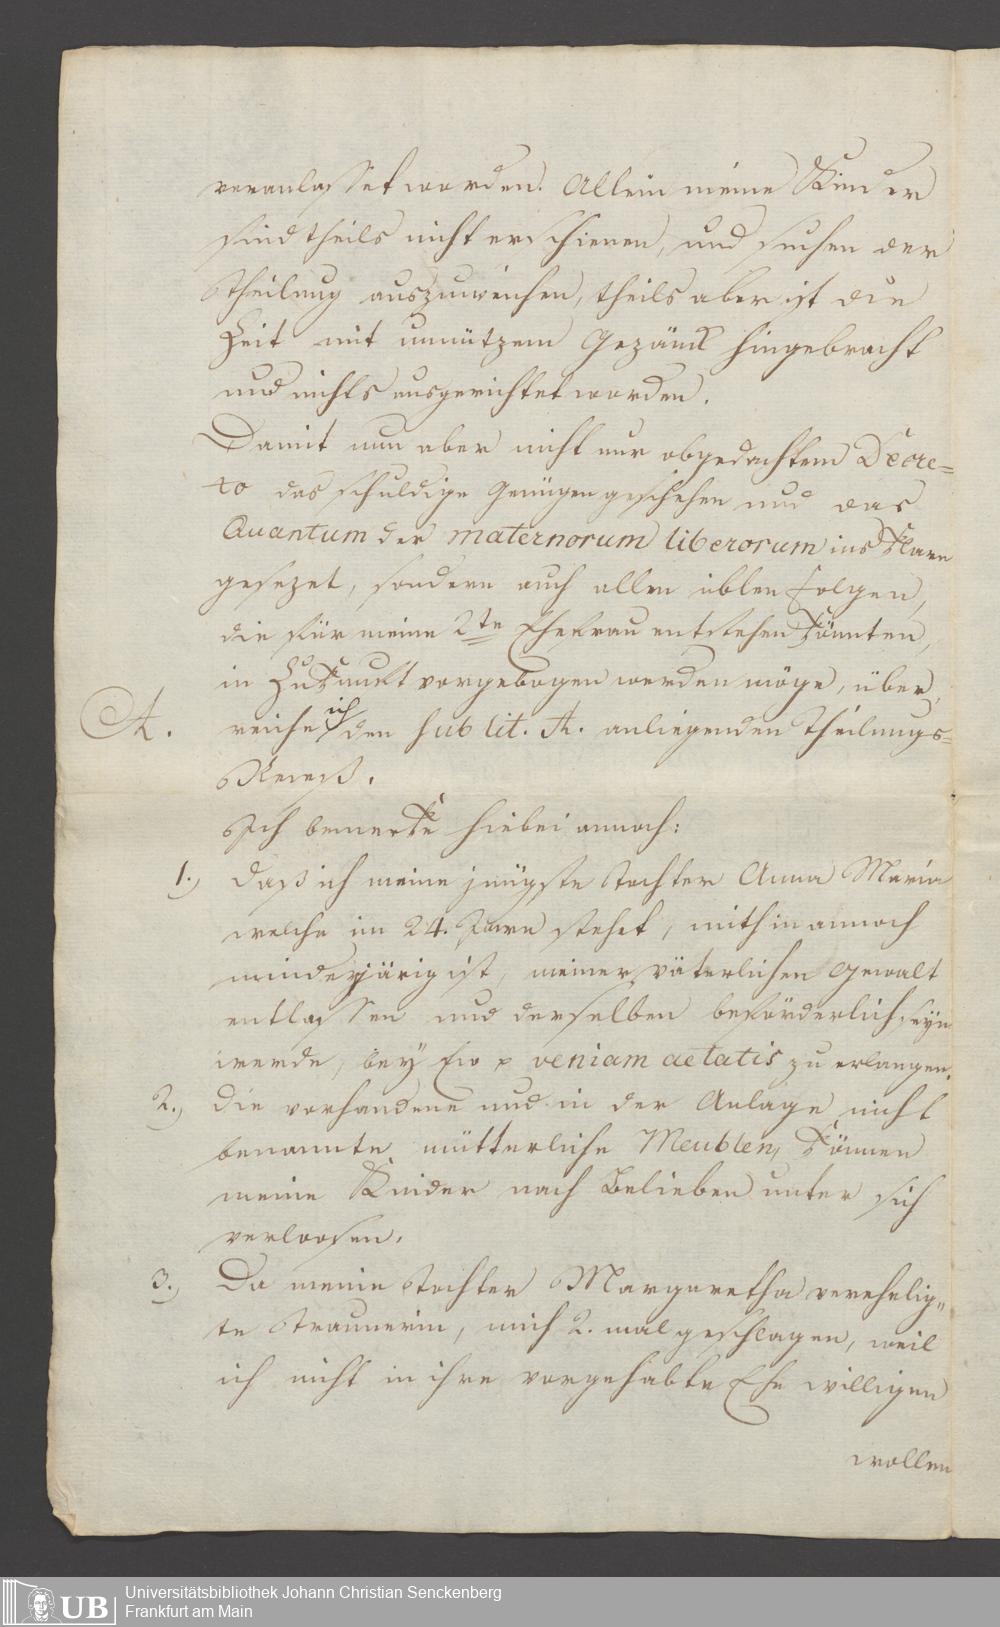 veranlasset worden. Allein meine Kinder
sind theils nicht erschienen, und suchen der
Theilung auszuweichen, theils aber ist die
Zeit mit unnützem Gezänk hingebracht
und nichts ausgerichtet worden.
Damit nun aber nicht nur obgedachtem Decre=
to das schuldige Genügen geschehen und das
Quantum der maternorum liberorum ins Klare
gesezet, sondern auch allen üblen Folgen,
die für meine 2te Ehefrau entstehen könnten,
in Zukunft vorgebogen werden möge, über
A. reiche ich den sub lit. A. anliegenden Theilungs=
Receß.
Ich bemerke hiebei annoch:
1.) daß ich meine jüngste Tochter Anna Maria
welche im 24. Jare stehet, mithin annoch
minderjärig ist, meiner väterlichen Gewalt
entlassen und derselben beförderlich seyn
werde, bey Ew p veniam aetatis zu erlangen.
2.) die vorhandene und in der Anlage nicht
benannte mütterliche Meublen, können
meine Kinder nach Belieben unter sich
verloosen.
3.) Da meine Tochter Margaretha verehelig„
te Traunerin, mich 2. mal geschlagen, weil
ich nicht in ihre vorgehabte Ehe willigen
wollen
UB Universitätsbibliothek Johann Christian Senckenberg
Frankfurt am Main